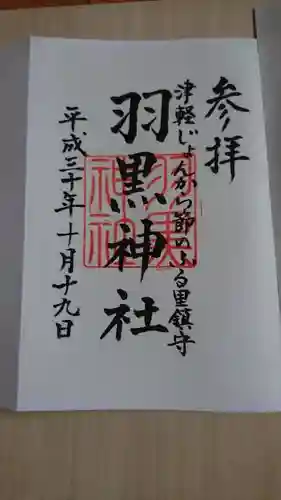 参拝
津軽じょんがら節のふる里鎮守
羽黒神社
羽黒神社
平成三十年十月十九日